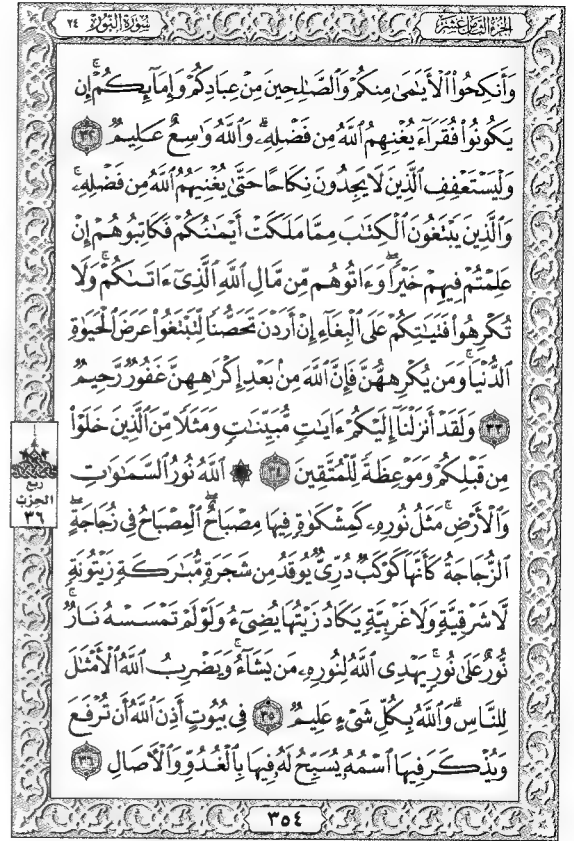 الجزء الثامن عشر
سورة النور ٢٤
وَأَنكِحُوا۟ ٱلْأَيَـٰمَىٰ مِنكُمْ وَٱلصَّـٰلِحِينَ مِنْ عِبَادِكُمْ وَإِمَآئِكُمْ ۚ إِن
يَكُونُوا۟ فُقَرَآءَ يُغْنِهِمُ ٱللَّهُ مِن فَضْلِهِۦ ۗ وَٱللَّهُ وَٰسِعٌ عَلِيمٌ ٣٢
وَلْيَسْتَعْفِفِ ٱلَّذِينَ لَا يَجِدُونَ نِكَاحًا حَتَّىٰ يُغْنِيَهُمُ ٱللَّهُ مِن فَضْلِهِۦ ۗ
وَٱلَّذِينَ يَبْتَغُونَ ٱلْكِتَـٰبَ مِمَّا مَلَكَتْ أَيْمَـٰنُكُمْ فَكَاتِبُوهُمْ إِنْ
عَلِمْتُمْ فِيهِمْ خَيْرًا ۖ وَءَاتُوهُم مِّن مَّالِ ٱللَّهِ ٱلَّذِىٓ ءَاتَىٰكُمْ ۚ وَلَا
تُكْرِهُوا۟ فَتَيَـٰتِكُمْ عَلَى ٱلْبِغَآءِ إِنْ أَرَدْنَ تَحَصُّنًا لِّتَبْتَغُوا۟ عَرَضَ ٱلْحَيَوٰةِ
ٱلدُّنْيَا ۚ وَمَن يُكْرِههُّنَّ فَإِنَّ ٱللَّهَ مِنۢ بَعْدِ إِكْرَٰهِهِنَّ غَفُورٌ رَّحِيمٌ
٣٣ وَلَقَدْ أَنزَلْنَآ إِلَيْكُمْ ءَايَـٰتٍ مُّبَيِّنَـٰتٍ وَمَثَلًا مِّنَ ٱلَّذِينَ خَلَوْا۟
مِن قَبْلِكُمْ وَمَوْعِظَةً لِّلْمُتَّقِينَ ٣٤ ۞ ٱللَّهُ نُورُ ٱلسَّمَـٰوَٰتِ
وَٱلْأَرْضِ ۚ مَثَلُ نُورِهِۦ كَمِشْكَوٰةٍ فِيهَا مِصْبَاحٌ ۖ ٱلْمِصْبَاحُ فِى زُجَاجَةٍ ۖ
ٱلزُّجَاجَةُ كَأَنَّهَا كَوْكَبٌ دُرِّىٌّ يُوقَدُ مِن شَجَرَةٍ مُّبَـٰرَكَةٍ زَيْتُونَةٍ
لَّا شَرْقِيَّةٍ وَلَا غَرْبِيَّةٍ يَكَادُ زَيْتُهَا يُضِىٓءُ وَلَوْ لَمْ تَمْسَسْهُ نَارٌ ۚ
نُّورٌ عَلَىٰ نُورٍ ۗ يَهْدِى ٱللَّهُ لِنُورِهِۦ مَن يَشَآءُ ۚ وَيَضْرِبُ ٱللَّهُ ٱلْأَمْثَـٰلَ
لِلنَّاسِ ۗ وَٱللَّهُ بِكُلِّ شَىْءٍ عَلِيمٌ ٣٥ فِى بُيُوتٍ أَذِنَ ٱللَّهُ أَن تُرْفَعَ
وَيُذْكَرَ فِيهَا ٱسْمُهُۥ يُسَبِّحُ لَهُۥ فِيهَا بِٱلْغُدُوِّ وَٱلْـَٔاصَالِ ٣٦
ربع
الحزب
٣٦
٣٥٤